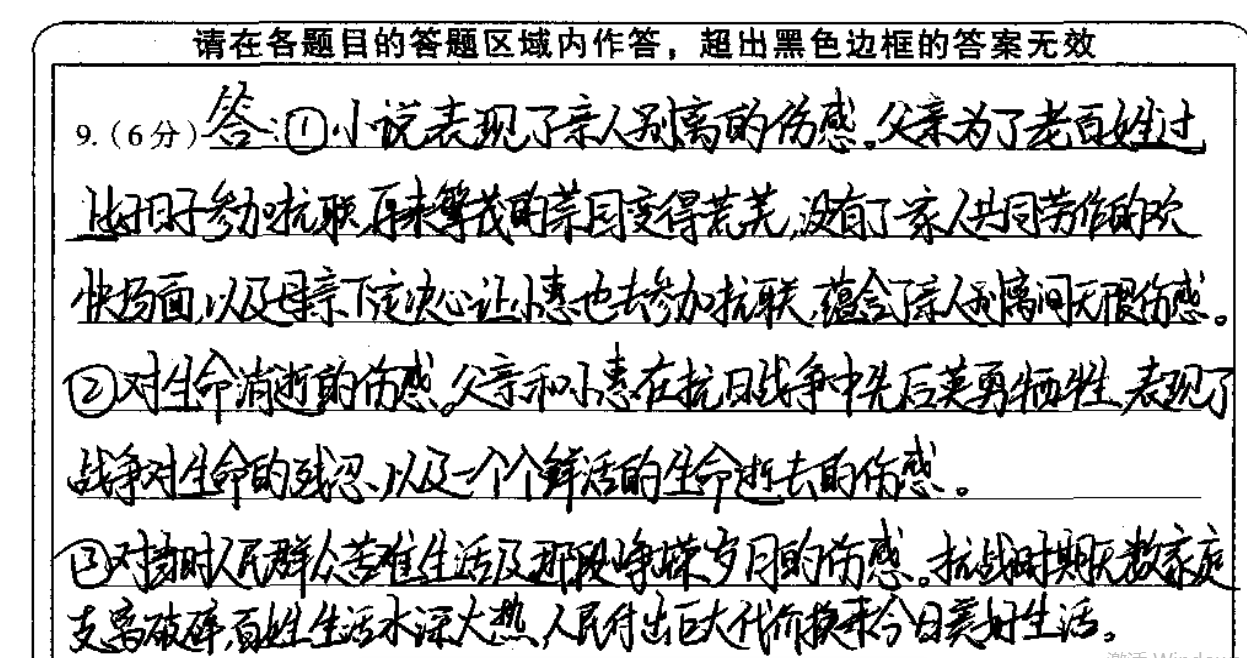 请在各题目的答题区域内作答，超出黑色边框的答案无效
9.(6分) 答:①小说表现了亲人别离的伤感。父亲为了老百姓过
上好日子参加抗联,原来繁茂的菜园变得荒芜,没有了家人共同劳作的欢
快场面,以及母亲下定决心让小惠也去参加抗联,蕴含了亲人别离间无限伤感。
②对生命消逝的伤感。父亲和小惠在抗日战争中先后英勇牺牲,表现了
战争对生命的残忍、以及一个个鲜活的生命逝去的伤感。
③对当时人民群众苦难生活及那段峥嵘岁月的伤感。抗战时期无数家庭
支离破碎,百姓生活水深火热,人民付出巨大代价换来今日美好生活。
激活 Windows